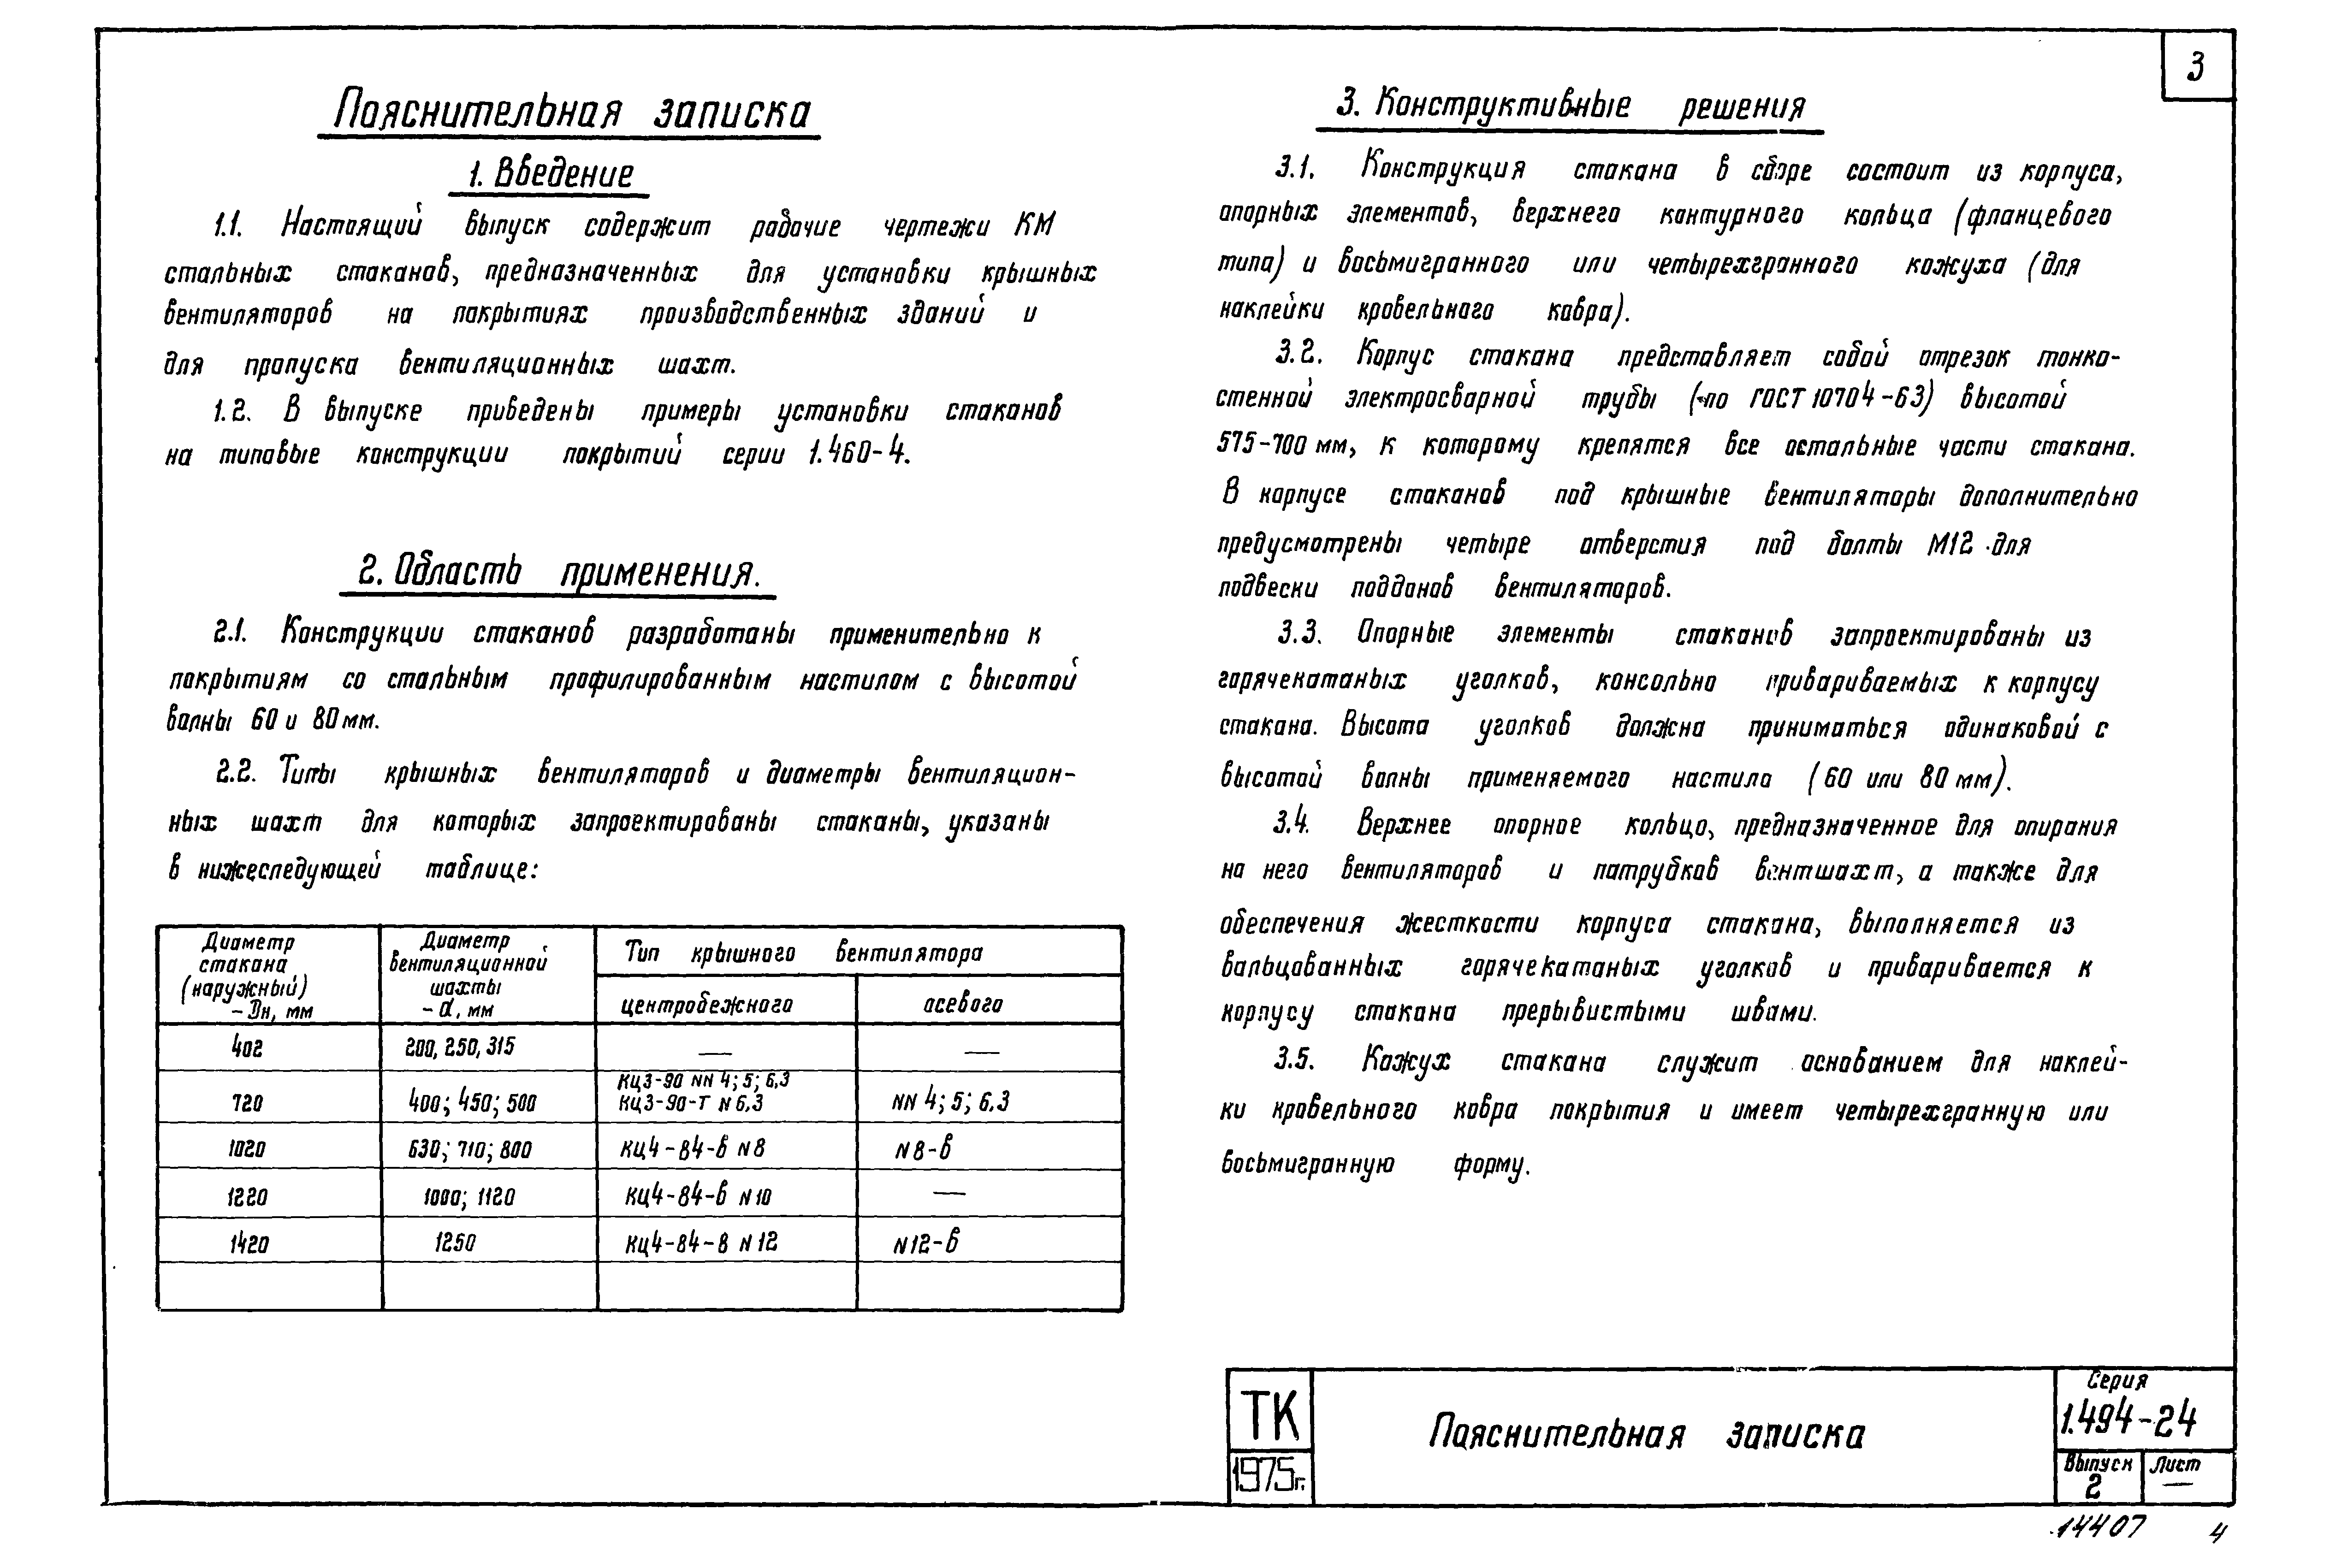 3
Пояснительная записка
1. Введение
1.1. Настоящий выпуск содержит рабочие чертежи КМ
стальных стаканов, предназначенных для установки крышных
вентиляторов на покрытиях производственных зданий и
для пропуска вентиляционных шахт.
1.2. В выпуске приведены примеры установки стаканов
на типовые конструкции покрытий серии 1.460-4.
2. Область применения.
2.1. Конструкции стаканов разработаны применительно к
покрытиям со стальным профилированным настилом с высотой
волны 60 и 80 мм.
2.2. Типы крышных вентиляторов и диаметры вентиляцион-
ных шахт для которых запроектированы стаканы, указаны
в нижеследующей таблице:
Диаметр
стакана
(наружный)
- Dн, мм
Диаметр
вентиляционной
шахты
- d, мм
Тип крышного вентилятора
центробежного
осевого
402
200, 250, 315
—
—
720
400; 450; 500
КЦ3-90 NN 4; 5; 6,3
КЦ3-90-Т N 6,3
NN 4; 5; 6.3
1020
630; 710; 800
КЦ4-84-В N8
N8-В
1220
1000; 1120
КЦ4-84-В N10
—
1420
1250
КЦ4-84-8 N12
N12-В
3. Конструктивные решения
3.1. Конструкция стакана в сборе состоит из корпуса,
опорных элементов, верхнего контурного кольца (фланцевого
типа) и восьмигранного или четырехгранного кожуха (для
наклейки кровельного ковра).
3.2. Корпус стакана представляет собой отрезок тонко-
стенной электросварной трубы (по ГОСТ 10704-63) высотой
575-700 мм, к которому крепятся все остальные части стакана.
В корпусе стаканов под крышные вентиляторы дополнительно
предусмотрены четыре отверстия под болты М12 для
подвески поддонов вентиляторов.
3.3. Опорные элементы стаканов запроектированы из
горячекатаных уголков, консольно привариваемых к корпусу
стакана. Высота уголков должна приниматься одинаковой с
высотой волны применяемого настила (60 или 80 мм).
3.4. Верхнее опорное кольцо, предназначенное для опирания
на него вентиляторов и патрубков вентшахт, а также для
обеспечения жесткости корпуса стакана, выполняется из
вальцованных горячекатаных уголков и приваривается к
корпусу стакана прерывистыми швами.
3.5. Кожух стакана служит основанием для наклей-
ки кровельного ковра покрытия и имеет четырехгранную или
восьмигранную форму.
ТК
1975г.
Пояснительная записка
Серия
1.494-24
Выпуск
2
Лист
—
14407 4